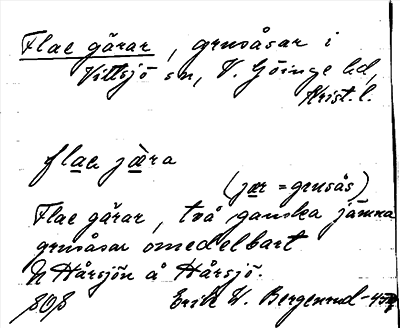 Flae gärar, grusåsar i
Vittsjö sn, V. Göinge hd,
Krist. l.
flae jæra
(jær = grusås)
Flae gärar, två ganska jämna
grusåsar omedelbart
N Hårsjön å Hårsjö.
808 Erik W. Bergenrud -45